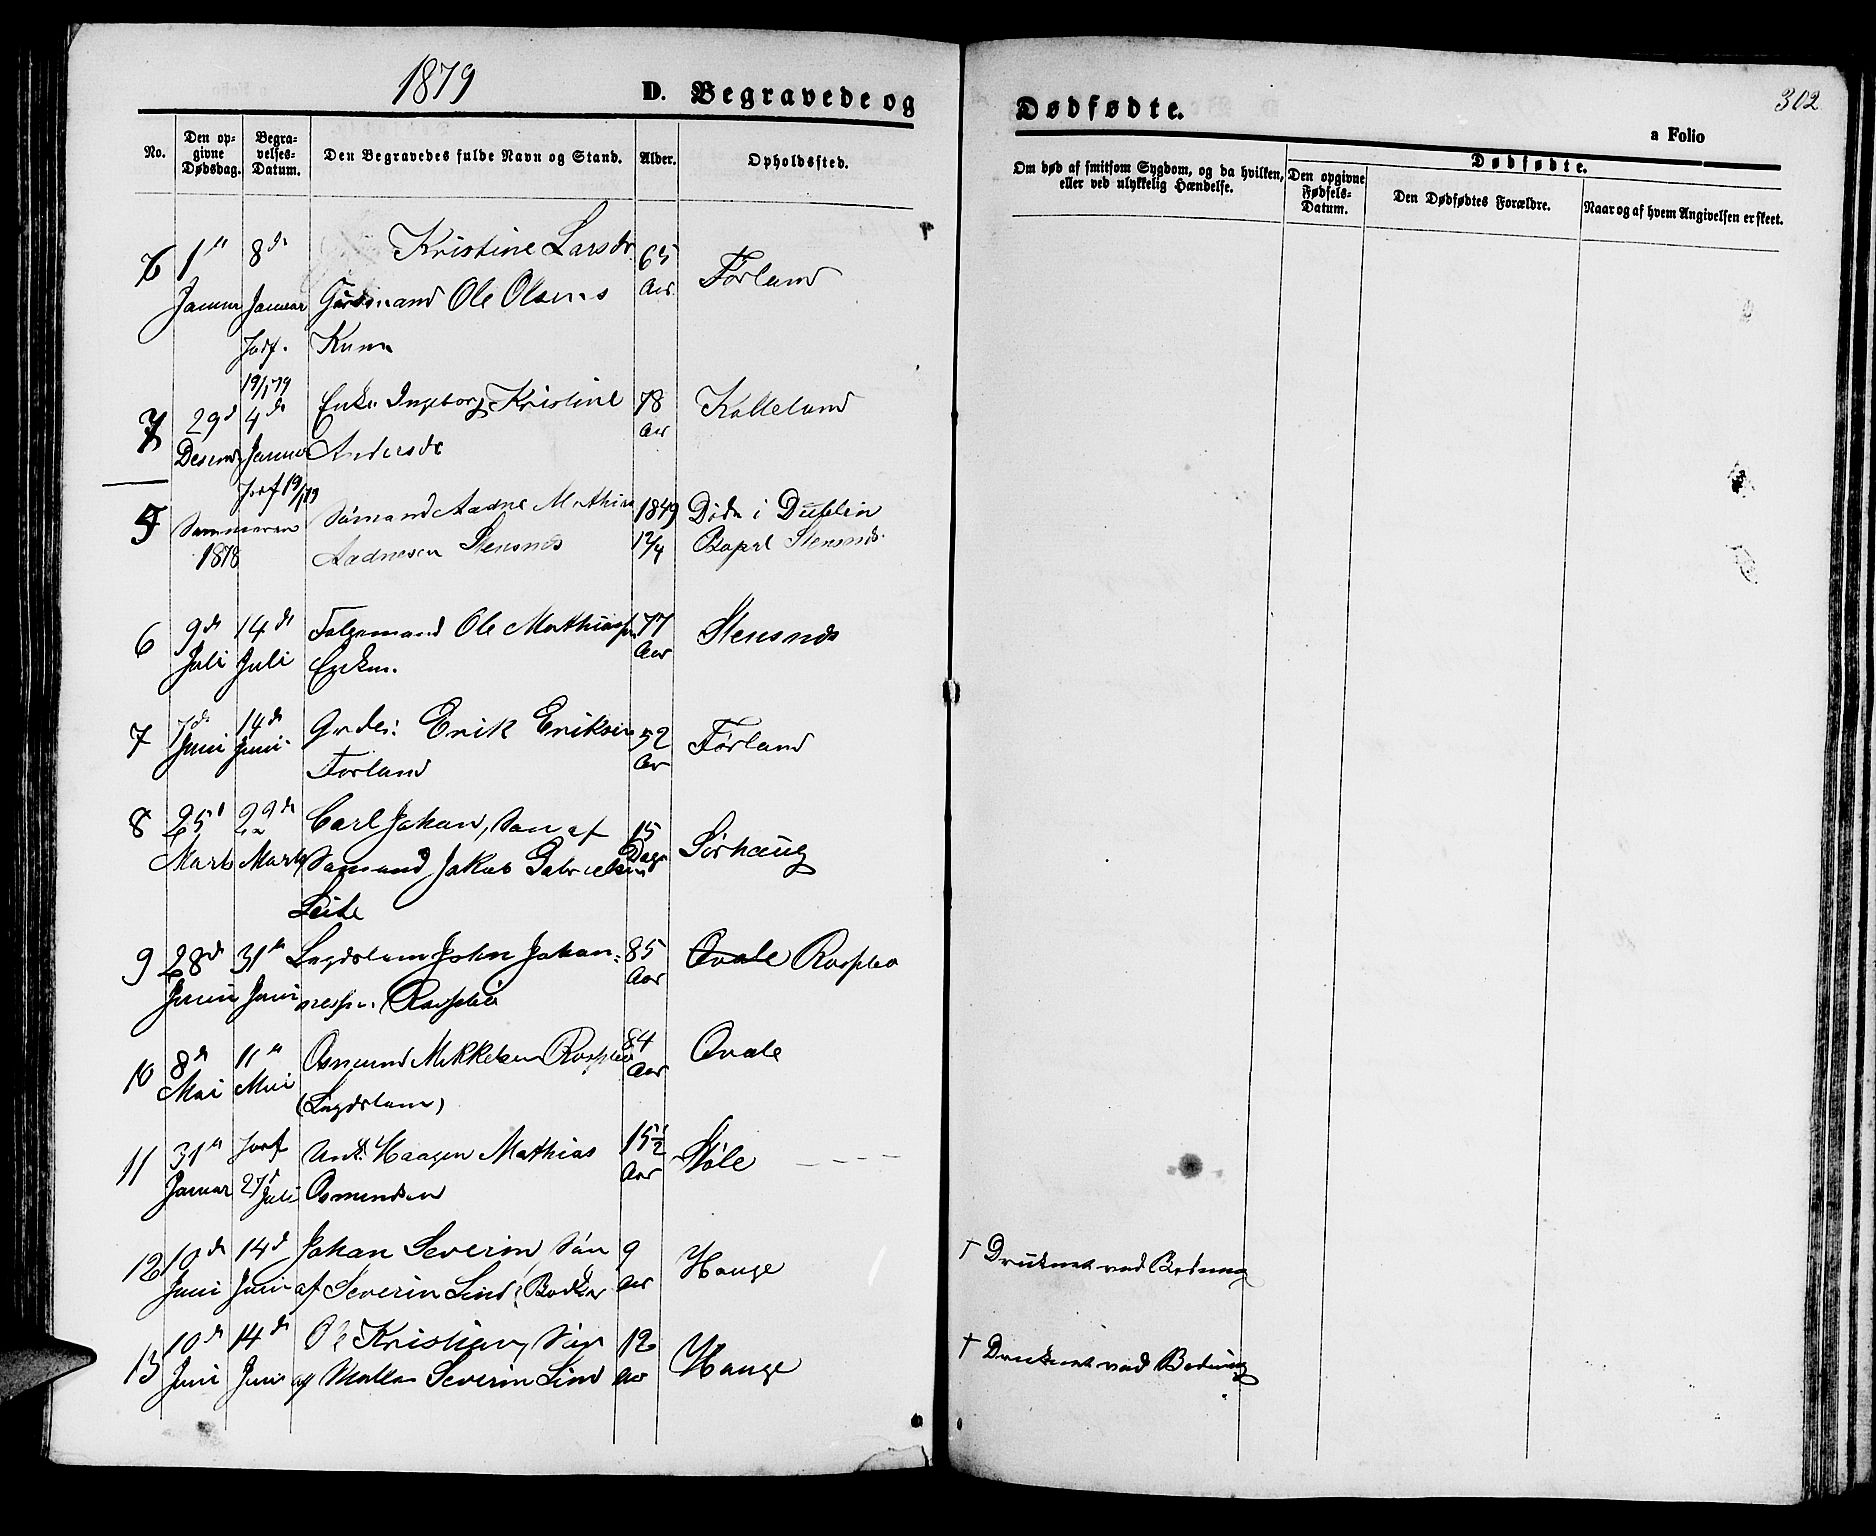 1879
D. Begravede og
No.
Den op-
givne
Dødsdag.
Begra-
velses-
Datum.
Den Begravedes fulde Navn og Stand.
Alder.
Opholdssted.
6 1ste 8de Kristine Larsdr 65 Førland
Januar Januar Gaardmand Ole Olsens Aar
Jordf. Kune
19/1 79
7 29d 4de Enke Ingeborg Kristine 78 Kalleland
Desemb Januar Andersdr Aar
Jordf 19/1 79
5 Sommeren Sømand Aadne Mathias 1849 Døde i Dublin
1878 Aadnesen Stensnes 12/4 Bopæl Stensnes
6 9de 14de Følgemand Ole Mathiassen 77 Stensnes
Juli Juli Aar
7 7de 14de Grdei: Erik Eriksen 52 Førland
Juni Juni Førland Aar
8 25d 29de Carl Johan, Søn af 15 Sørhaug
Marts Marts Sømand Jakob Gabrielsen Dage
Leite
9 28de 31te Lægdslem John Johan- 85 Qvale
Juni Juni nessen Aar
10 8de 11te Osmund Mikkelsen 84 Qvale
Mai Mai (Lægdslem) Aar
11 31te Jordf Unk. Haagen Mathias 15½ Støle
Januar 27d Juli Osmundsen Aar
12 10de 14d Johan Severin, Søn 9 Hauge
Juni Juni af Severin Lind, Bødker Aar
13 10de 14de Ole Kristian, Søn 12 Hauge
Juni Juni af Severin Lind Aar
302
Dødfødte.
a Folio
Om død af smitsom Sygdom, og da hvilken,
eller ved ulykkelig Hændelse.
Dødfødte.
Den opgivne
Fødsels-
Datum.
Den Dødfødtes Forældre.
Naar og af hvem Angivelsen er skeet.
† Druknet ved Badning
† Druknet ved Badning